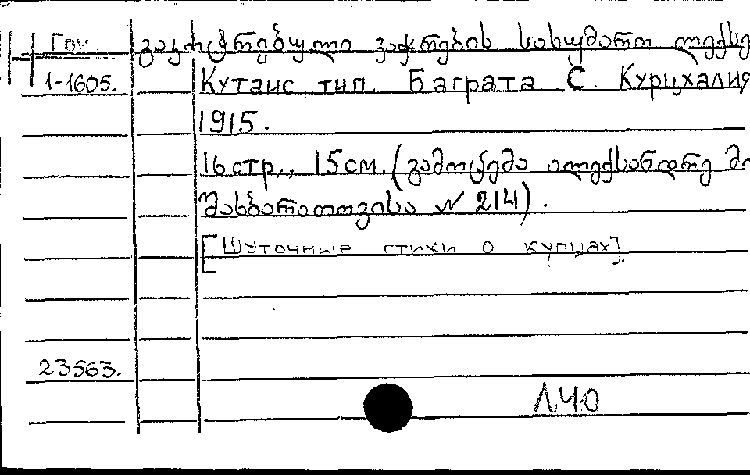 Груз
1-1605.
გაკოტრებული ვაჭრების სახუმარო ლექსე
Кутаис тип. Баграта С. Курцхалия
1915.
16 стр., 15 см. (გამოცემა ალექსანდრე
№ 214).
[Шуточные стихи о купцах].
23563.
ЛЧО